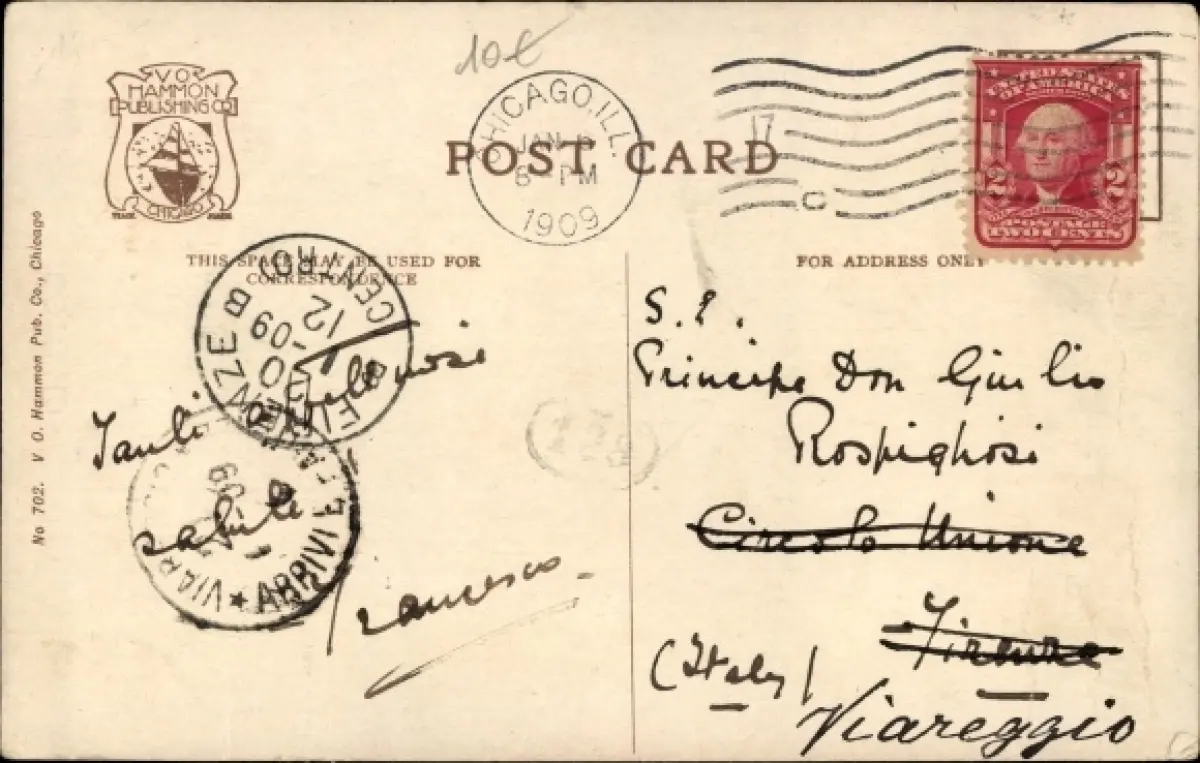 10€
V O
HAMMON
PUBLISHING CO
CHICAGO
TRADE MARK
CHICAGO, ILL.
JAN
PM
1909
17
C
POST CARD
UNITED STATES
OF AMERICA
2 2
POSTAGE
TWO CENTS
THIS SPACE MAY BE USED FOR
CORRESPONDENCE
FOR ADDRESS ONLY
No 702. V O. Hammon Pub. Co., Chicago
FIRENZE B CENTRO
12
09
Tanti
saluti
Francesco
VIAR ★ ARRIVI E
09
S. E.
Principe Don Giulio
Rospigliosi
Circolo Unione
Firenze
(Italy)
Viareggio